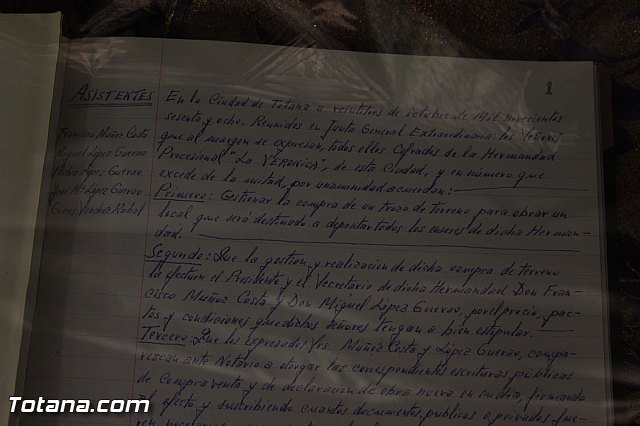 1
ASISTENTES
Francisco Muñoz Costa
Miguel López Guerao
Pedro López Guerao
José Mª López Guerao
Sánchez Rabal
En la Ciudad de Totana a veintitres de Octubre de Mil novecientos
sesenta y ocho. Reunidos en Junta General Extraordinaria los Señores
que al margen se expresan, todos ellos Cofrades de la Hermandad
Procesional "LA VERONICA", de esta Ciudad, y en número que
excede de la mitad, por unanimidad acuerdan:
Primero: Gestionar la compra de un trozo de terreno para obrar un
local que será destinado a depositar todos los enseres de dicha Herman-
dad.
Segundo: Que la gestion y realización de dicha compra de terreno
la efectuen el Presidente y el Secretario de dicha Hermandad Don Fran-
cisco Muñoz Costa y Don Miguel López Guerao, por el precio, pac-
tos y condiciones que dichos señores tengan a bien estipular.
Tercero: Que los expresados Srs. Muñoz Costa y López Guerao, compa-
rezcan ante Notario a otorgar las correspondientes escrituras publicas
de Compra venta y de declaración de obra nueva en su dia, firmando
al efecto y suscribiendo cuantos documentos publicos o privados fue-
ren
Totana.com